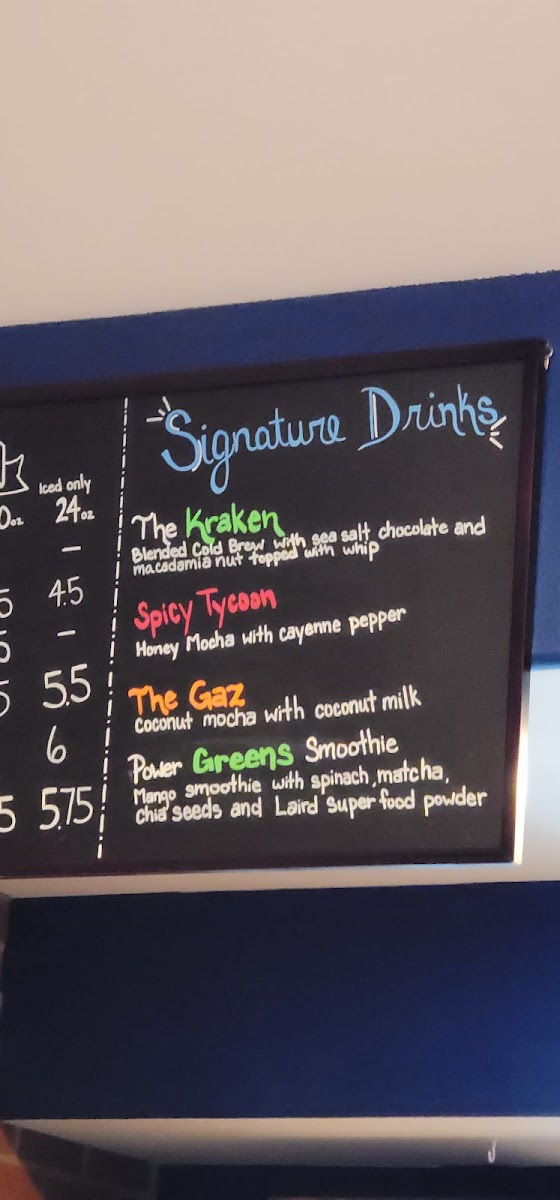 Iced only
24oz
—
4.5
—
5.5
6
5.75
Signature Drinks
The Kraken
Blended Cold Brew with sea salt chocolate and
macadamia nut topped with whip
Spicy Tycoon
Honey Mocha with cayenne pepper
The Gaz
coconut mocha with coconut milk
Power Greens Smoothie
Mango smoothie with spinach, matcha,
chia seeds and Laird Superfood powder